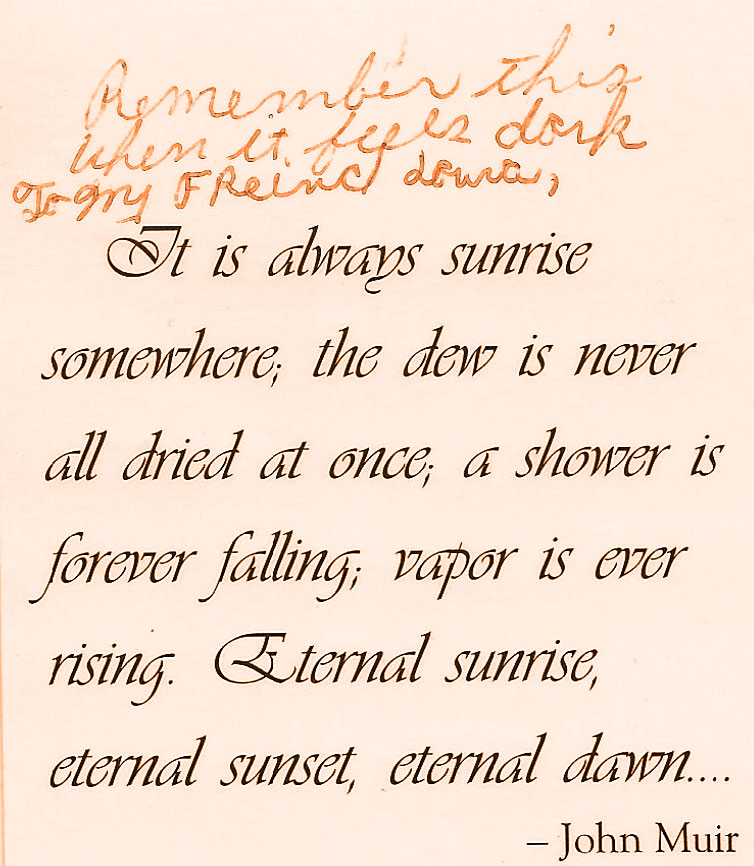 Remember this
when it feels dark
To my FReind
It is always sunrise
somewhere; the dew is never
all dried at once; a shower is
forever falling; vapor is ever
rising. Eternal sunrise,
eternal sunset, eternal dawn....
– John Muir